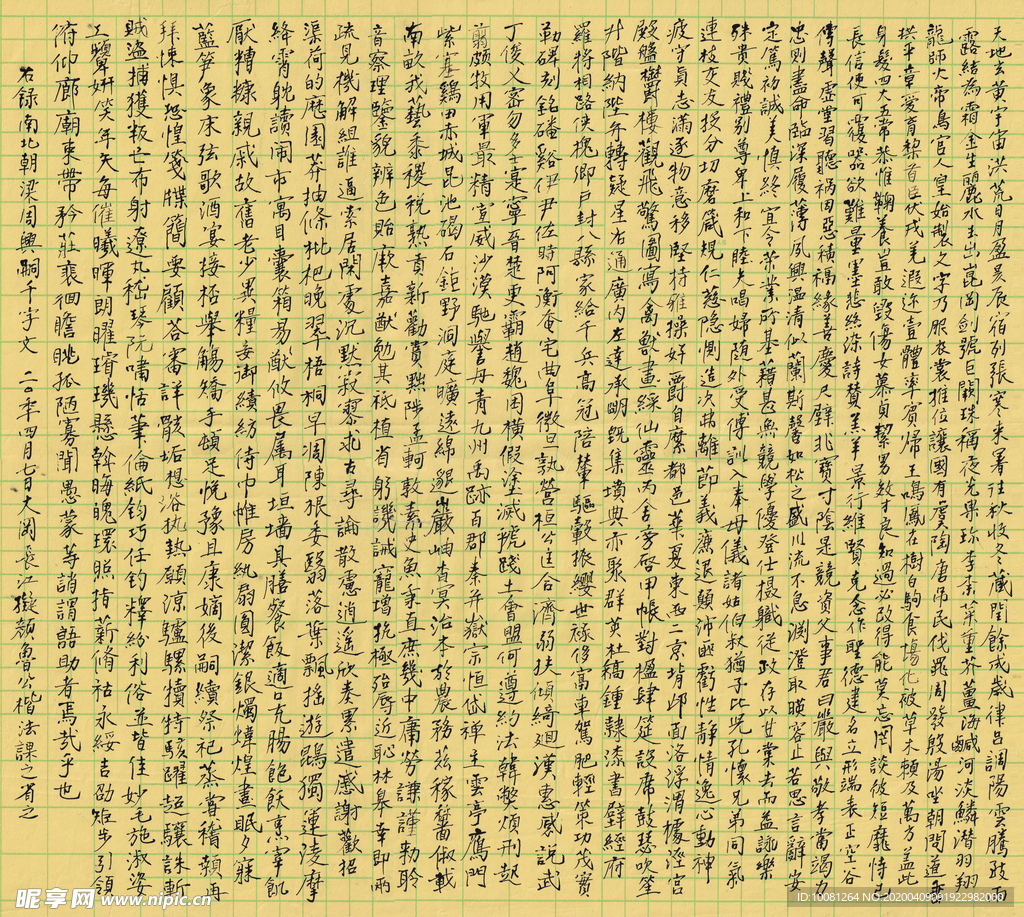 天地玄黄宇宙洪荒日月盈昃辰宿列張寒来暑往秋收冬藏閏餘成歲律呂調陽雲騰致雨
露結為霜金生麗水玉出崑岡剑號巨闕珠稱夜光果珍李柰菜重芥薑海鹹河淡鱗潛羽翔
龍師火帝鳥官人皇始製文字乃服衣裳推位讓國有虞陶唐吊民伐罪周發殷湯坐朝問道垂
拱平章愛育黎首臣伏戎羌遐迩壹體率賓歸王鳴鳳在樹白駒食場化被草木賴及萬方盖此
身髮四大五常恭惟鞠養豈敢毀傷女慕貞絜男效才良知過必改得能莫忘罔談彼短靡恃己
長信使可覆器欲難量墨悲絲染詩贊羔羊景行維賢克念作聖德建名立形端表正空谷
傳聲虛堂習聽禍因惡積福緣善慶尺璧非寶寸陰是競資父事君曰嚴與敬孝當竭力
忠則盡命臨深履薄夙興溫清似蘭斯馨如松之盛川流不息淵澄取暎容止若思言辭安
定篤初誠美慎終宜令榮業所基藉甚無競學優登仕攝職從政存以甘棠去而益詠樂
殊貴賤禮別尊卑上和下睦夫唱婦随外受傅訓入奉母儀諸姑伯叔猶子比兒孔懷兄弟同氣
連枝交友投分切磨箴規仁慈隐惻造次弗離節義廉退顛沛匪虧性靜情逸心動神
疲守真志滿逐物意移堅持雅操好爵自縻都邑華夏東西二京背邙面洛浮渭據涇宮
殿盤欝樓觀飛驚圖寫禽獸畫綵仙靈丙舍旁啓甲帳對楹肆筵設席鼓瑟吹笙
升階納陛弁轉疑星右通廣内左達承明既集墳典亦聚群英杜稿鍾隸漆書壁經府
羅將相路俠槐卿戶封八縣家給千兵高冠陪輦驅轂振纓世祿侈富車駕肥輕策功茂實
勒碑刻銘磻谿伊尹佐時阿衡奄宅曲阜微旦孰營桓公匡合濟弱扶傾綺迴漢惠感說武
丁俊乂密勿多士寔寧晉楚更霸趙魏困橫假途滅虢踐土會盟何遵約法韓弊煩刑起
翦頗牧用軍最精宣威沙漠馳譽丹青九州禹跡百郡秦并嶽宗恒岱禅主雲亭鴈門
紫塞鷄田赤城昆池碣石鉅野洞庭曠遠綿邈巖岫杳冥治本於農務茲稼穡俶載
南畝我藝黍稷稅熟貢新勸賞黜陟孟軻敦素史魚秉直庶幾中庸勞謙謹敕聆
音察理鑒貌辨色貽厥嘉猷勉其祗植省躬譏誡寵增抗極殆辱近恥林皋幸即兩
疏見機解組誰逼索居閑處沉默寂寥求古尋論散慮逍遥欣奏累遣慼謝歡招
渠荷的歷園莽抽條枇杷晚翠梧桐早凋陳根委翳落葉飄搖遊鵾獨運凌摩
絳霄耽讀翫市寓目囊箱易輶攸畏属耳垣墻具膳飡飯適口充腸飽飫烹宰飢
厭糟糠親戚故舊老少異糧妾御績紡侍巾帷房紈扇圓潔銀燭煒煌晝眠夕寐
藍笋象床弦歌酒宴接杯舉觴矯手頓足悅豫且康嫡後嗣續祭祀蒸嘗稽顙再
拜悚懼恐惶箋牒簡要顧答審詳骸垢想浴執熱願涼驢騾犢特駭躍超驤誅斬
賊盗捕獲叛亡布射遼丸嵇琴阮嘯恬筆倫紙鈞巧任釣釋紛利俗並皆佳妙毛施淑姿
工顰妍笑年矢每催曦暉朗曜璿璣懸斡晦魄環照指薪脩祜永綏吉劭矩步引領
俯仰廊廟束帶矜莊裵徊瞻眺孤陋寡聞愚蒙等誚謂語助者焉哉乎也
右録南北朝梁周興嗣千字文 二〇年四月七日大 長江擬顏魯公楷法課之省之
昵享网 www.nipic.cn
ID:10081264 NO:20200409091922982000